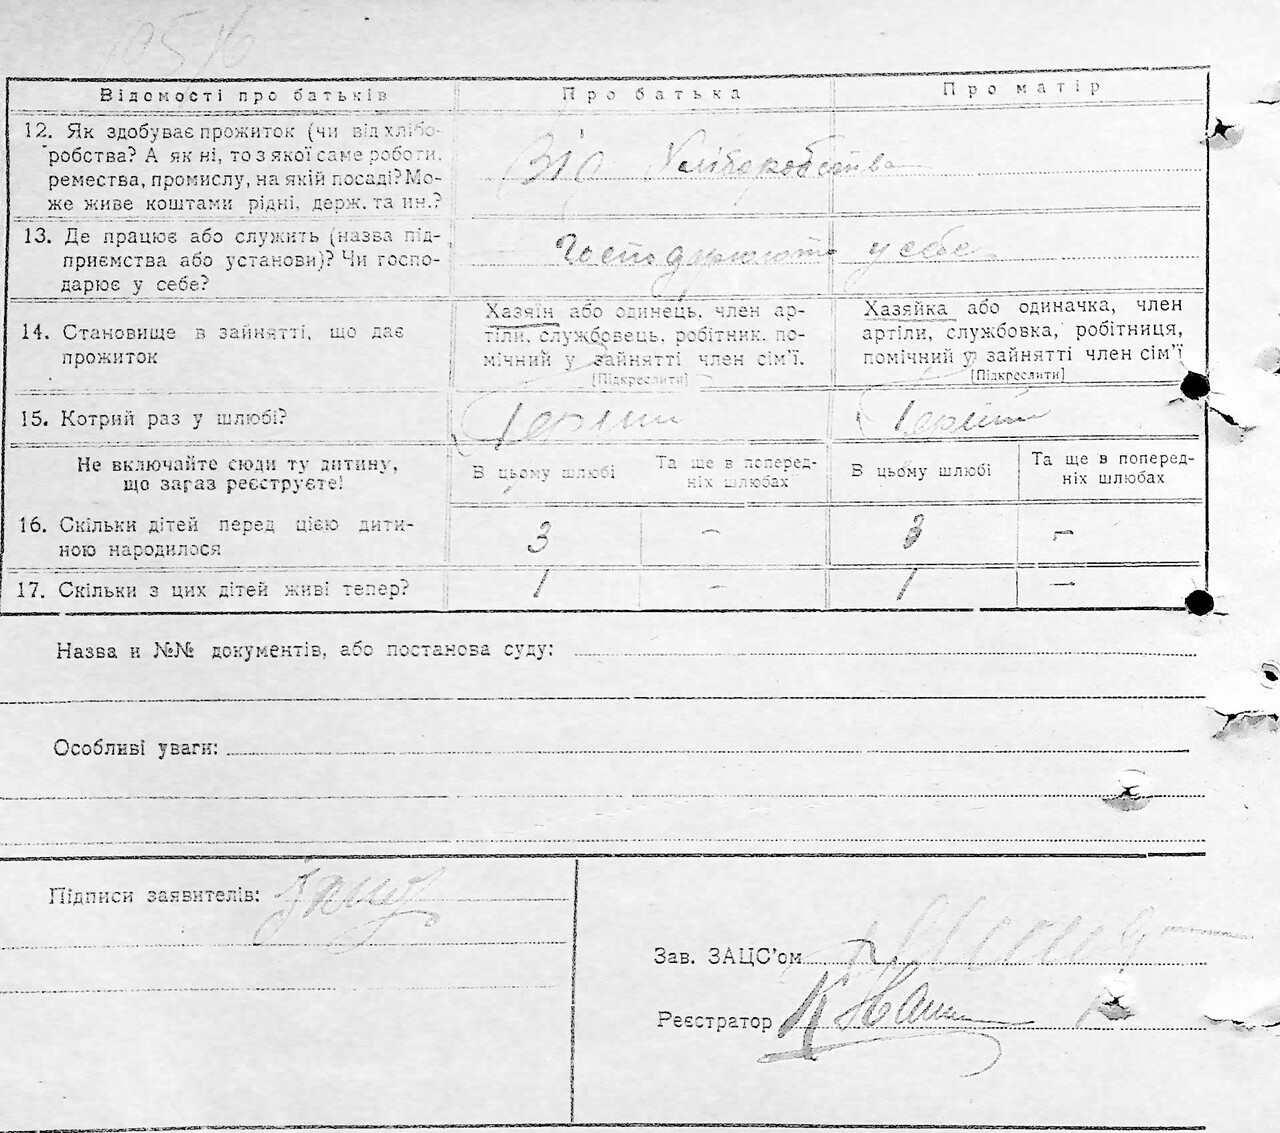 10516
Відомості про батьків
Про батька
Про матір
12. Як здобуває прожиток (чи від хлібо-
робства? А як ні, то з якої саме роботи,
ремества, промислу, на якій посаді? Мо-
же живе коштами рідні, держ. та ин.?
Від Хліборобства
13. Де працює або служить (назва під-
приємства або установи)? Чи госпо-
дарює у себе?
Господарюють у себе
14. Становище в зайнятті, що дає
прожиток
Хазяїн або одинець, член ар-
тіли, службовець, робітник, по-
мічний у зайнятті член сім'ї.
[Підкреслити]
Хазяйка або одиначка, член
артіли, службовка, робітниця,
помічний у зайнятті член сім'ї
[Підкреслити]
15. Котрий раз у шлюбі?
Не включайте сюди ту дитину,
що загаз реєструєте!
В цьому шлюбі
Та ще в поперед-
ніх шлюбах
В цьому шлюбі
Та ще в поперед-
ніх шлюбах
16. Скільки дітей перед цією дити-
ною народилося
3 – 3 –
17. Скільки з цих дітей живі тепер?
1 – 1 –
Назва и №№ документів, або постанова суду:
Особливі уваги:
Підписи заявителів:
Зав. ЗАЦС'ом
Реєстратор